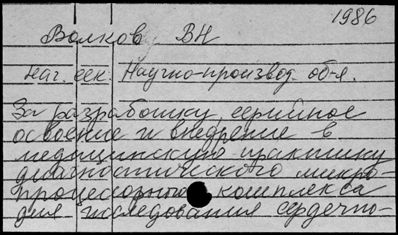 1986
Волков ВН
нач. сек. Научно-производ. об-я.
За разработку, серийное
освоение и внедрение в
медицинскую практику
диагностического микро-
процессорного комплекса
для исследования сердечно-